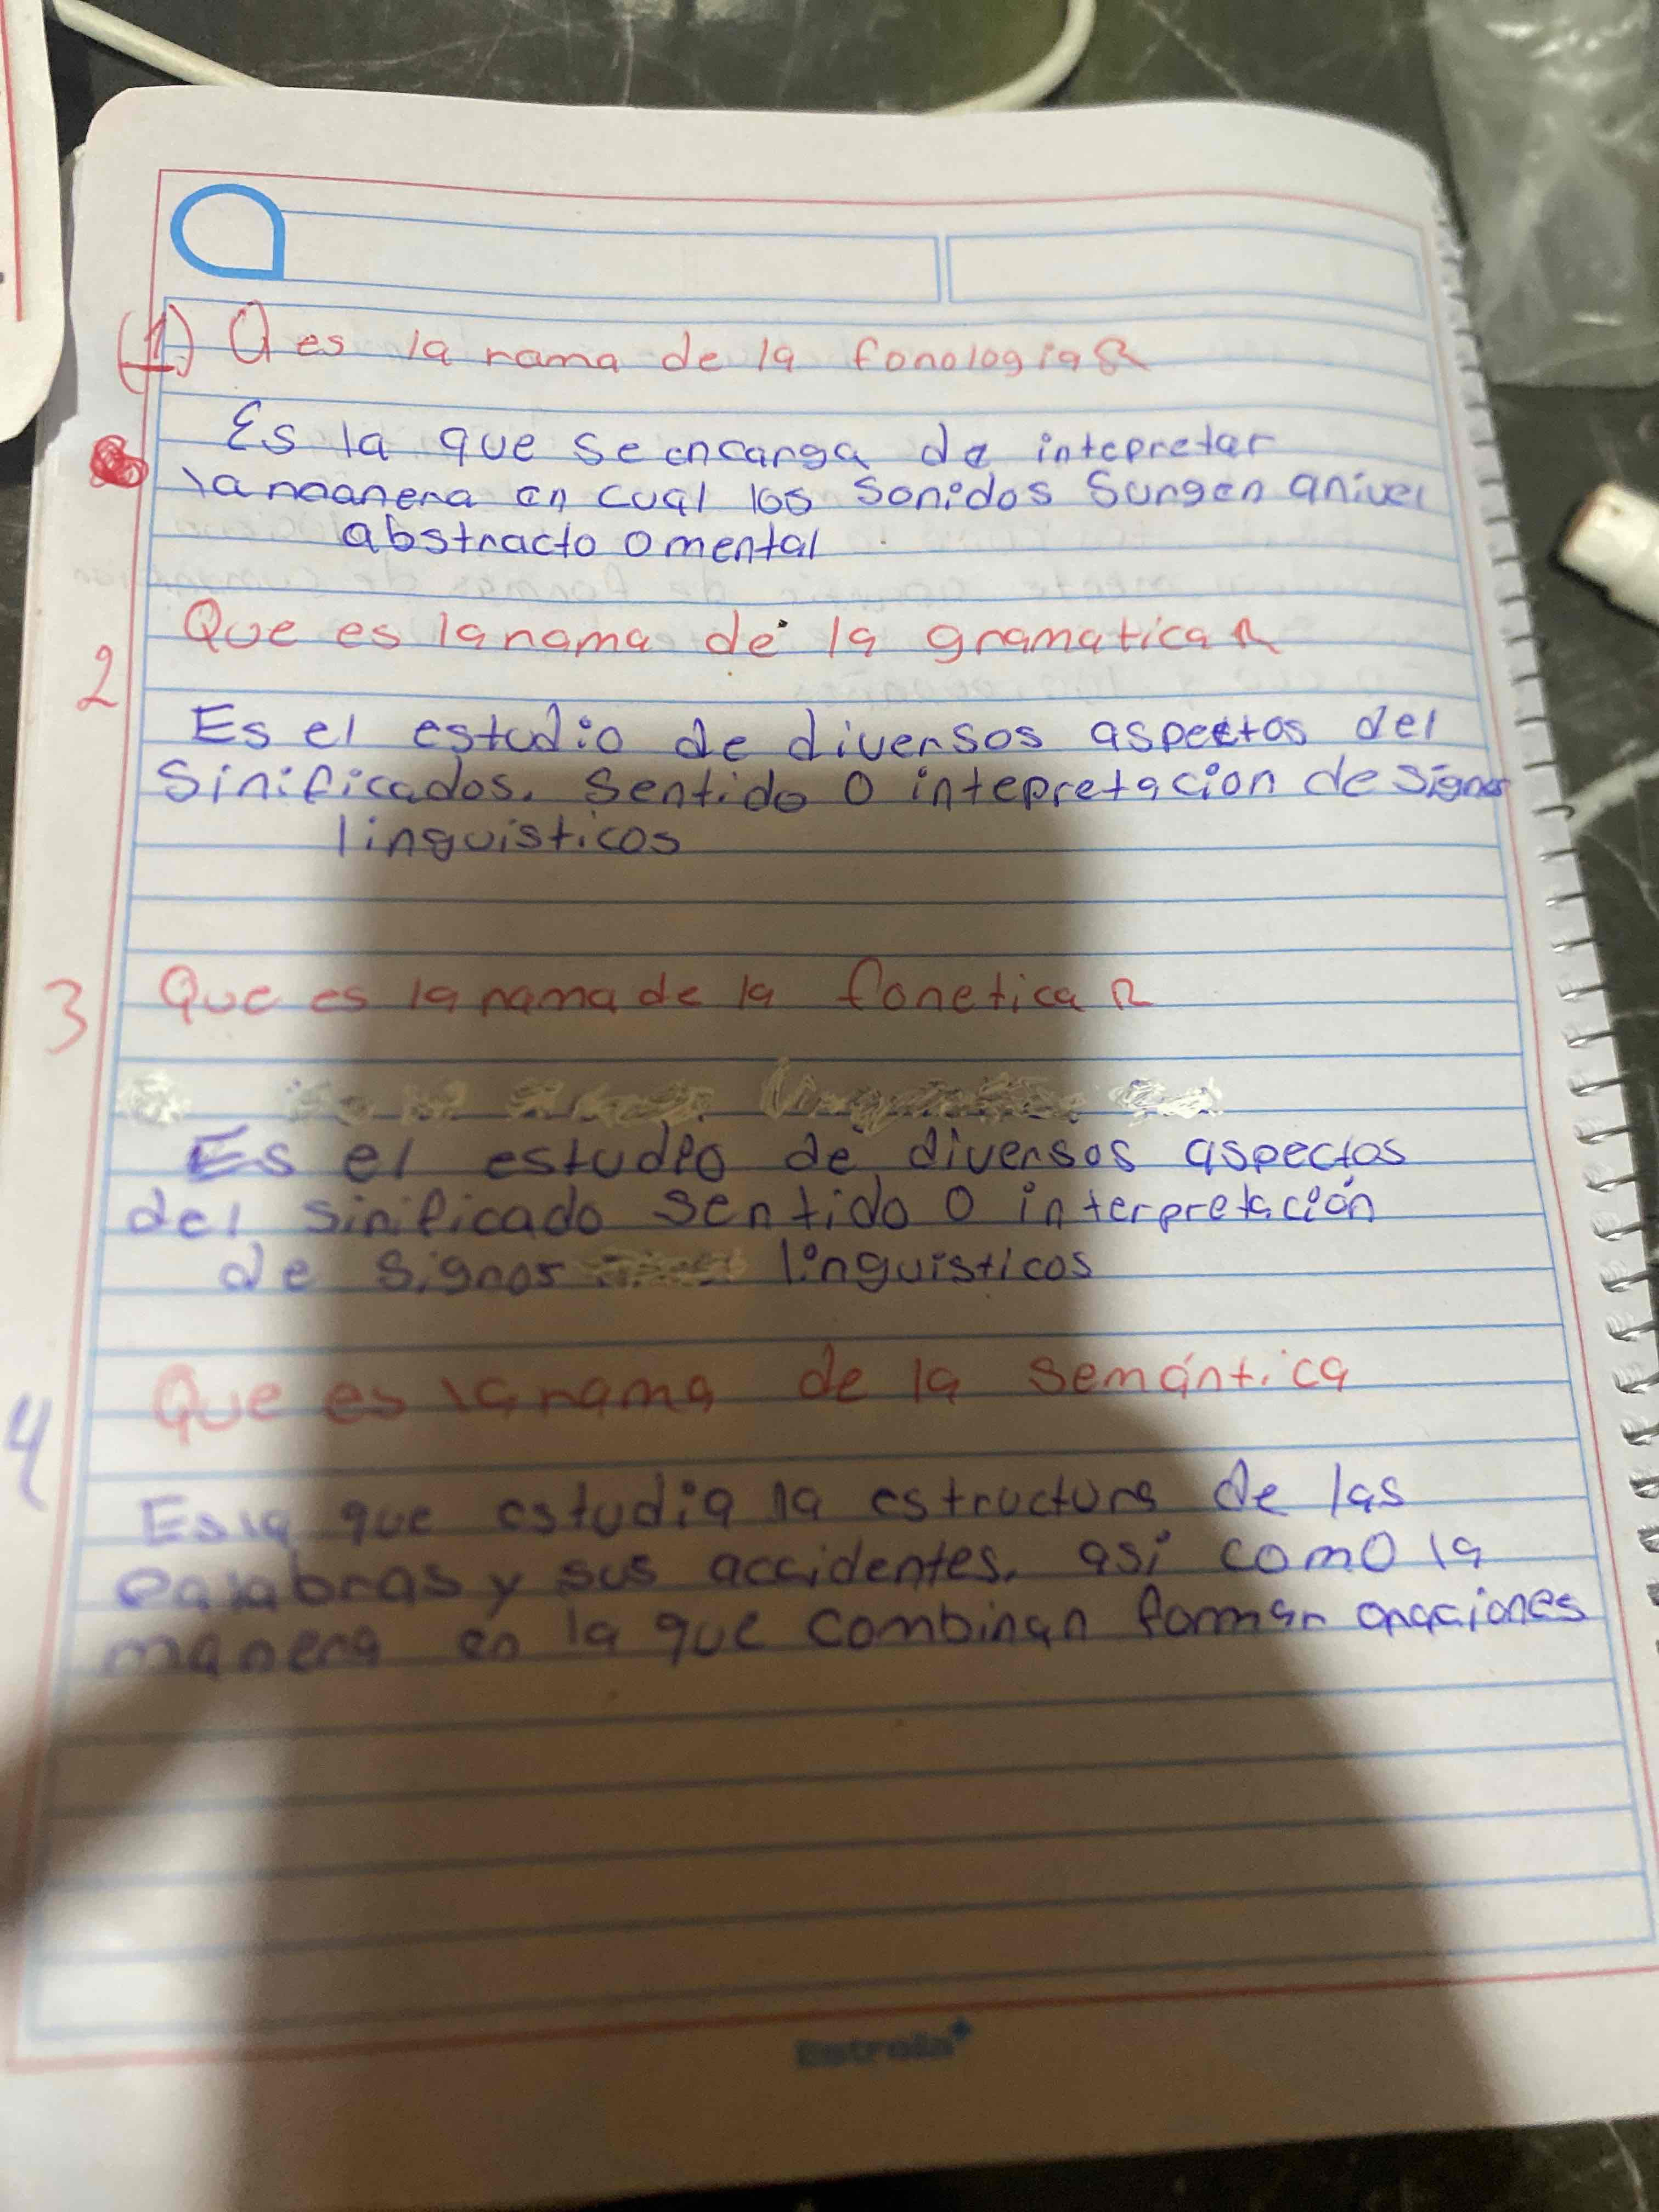 (1) Q es la rama de la fonologia R
Es la que se encarga de intepretar
la manera en cual los Sonidos Surgen anivel
abstracto o mental
2 Que es la rama de la gramatica R
Es el estudio de diversos aspectos del
Sinificados. Sentido o intepretacion de signos
linguisticos
3 Que es la rama de la fonetica R
Es el estudio de diversos aspectos
del sinificado sentido o interpretación
de signos linguisticos
4 Que es la rama de la semántica
Es la que estudia la estructura de las
palabras y sus accidentes. asi como la
manera en la que combinan forman oraciones
Estrella